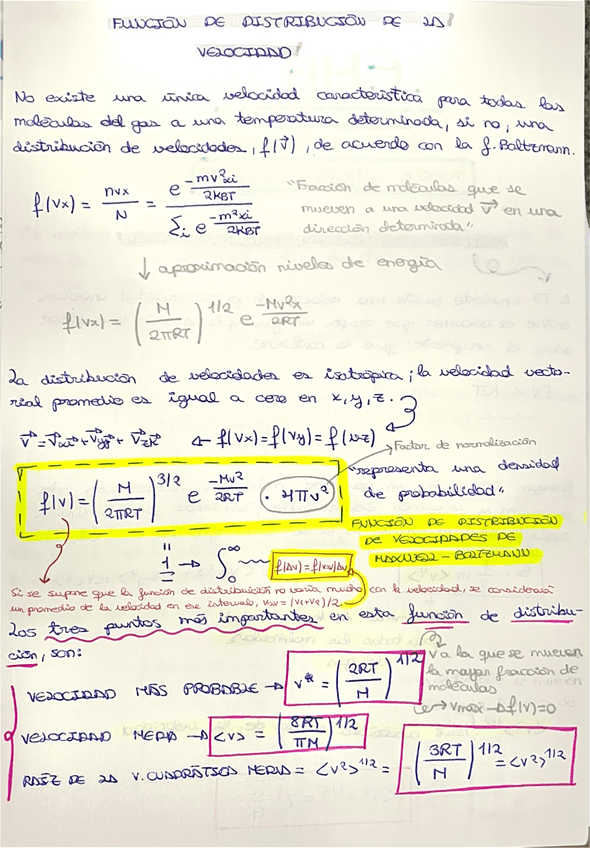 FUNCIÓN DE DISTRIBUCIÓN DE LA
VELOCIDAD
No existe una única velocidad característica para todas las
moléculas del gas a una temperatura determinada, si no, una
distribución de velocidades, f(v⃗), de acuerdo con la f. Boltzmann.
f(vx) = nvx/N = e^(-mv²xi/2KBT) / Σi e^(-m²xi/2KBT)
"Fracción de moléculas que se
mueven a una velocidad v⃗ en una
dirección determinada"
↓ aproximación niveles de energía
f(vx) = (M/2πRT)^1/2 e^(-Mv²x/2RT)
La distribución de velocidades es isotrópica; la velocidad vecto-
rial promedio es igual a cero en x, y, z.
← f(vx)=f(vy)=f(vz)
Factor de normalización
f(v) = (M/2πRT)^3/2 e^(-Mv²/2RT) · 4πv²
"representa una densidad
de probabilidad"
FUNCIÓN DE DISTRIBUCIÓN
DE VELOCIDADES DE
MAXWELL-BOLTZMANN
1 → ∫0^∞
f(Δv)=f(vav)Δv
Si se supone que la función de distribución no varía mucho con la velocidad, se considerará
un promedio de la velocidad en ese intervalo, vav = (v1+v2)/2
Los tres puntos más importantes en esta función de distribu-
ción, son:
v a la que se mueven
la mayor fracción de
moléculas
→ vmax → f(v)=0
VELOCIDAD MÁS PROBABLE → v* = (2RT/M)^1/2
VELOCIDAD MEDIA → <v> = (8RT/πM)^1/2
RAÍZ DE LA V. CUADRÁTICA MEDIA = <v²>^1/2 = (3RT/M)^1/2 = <v²>^1/2